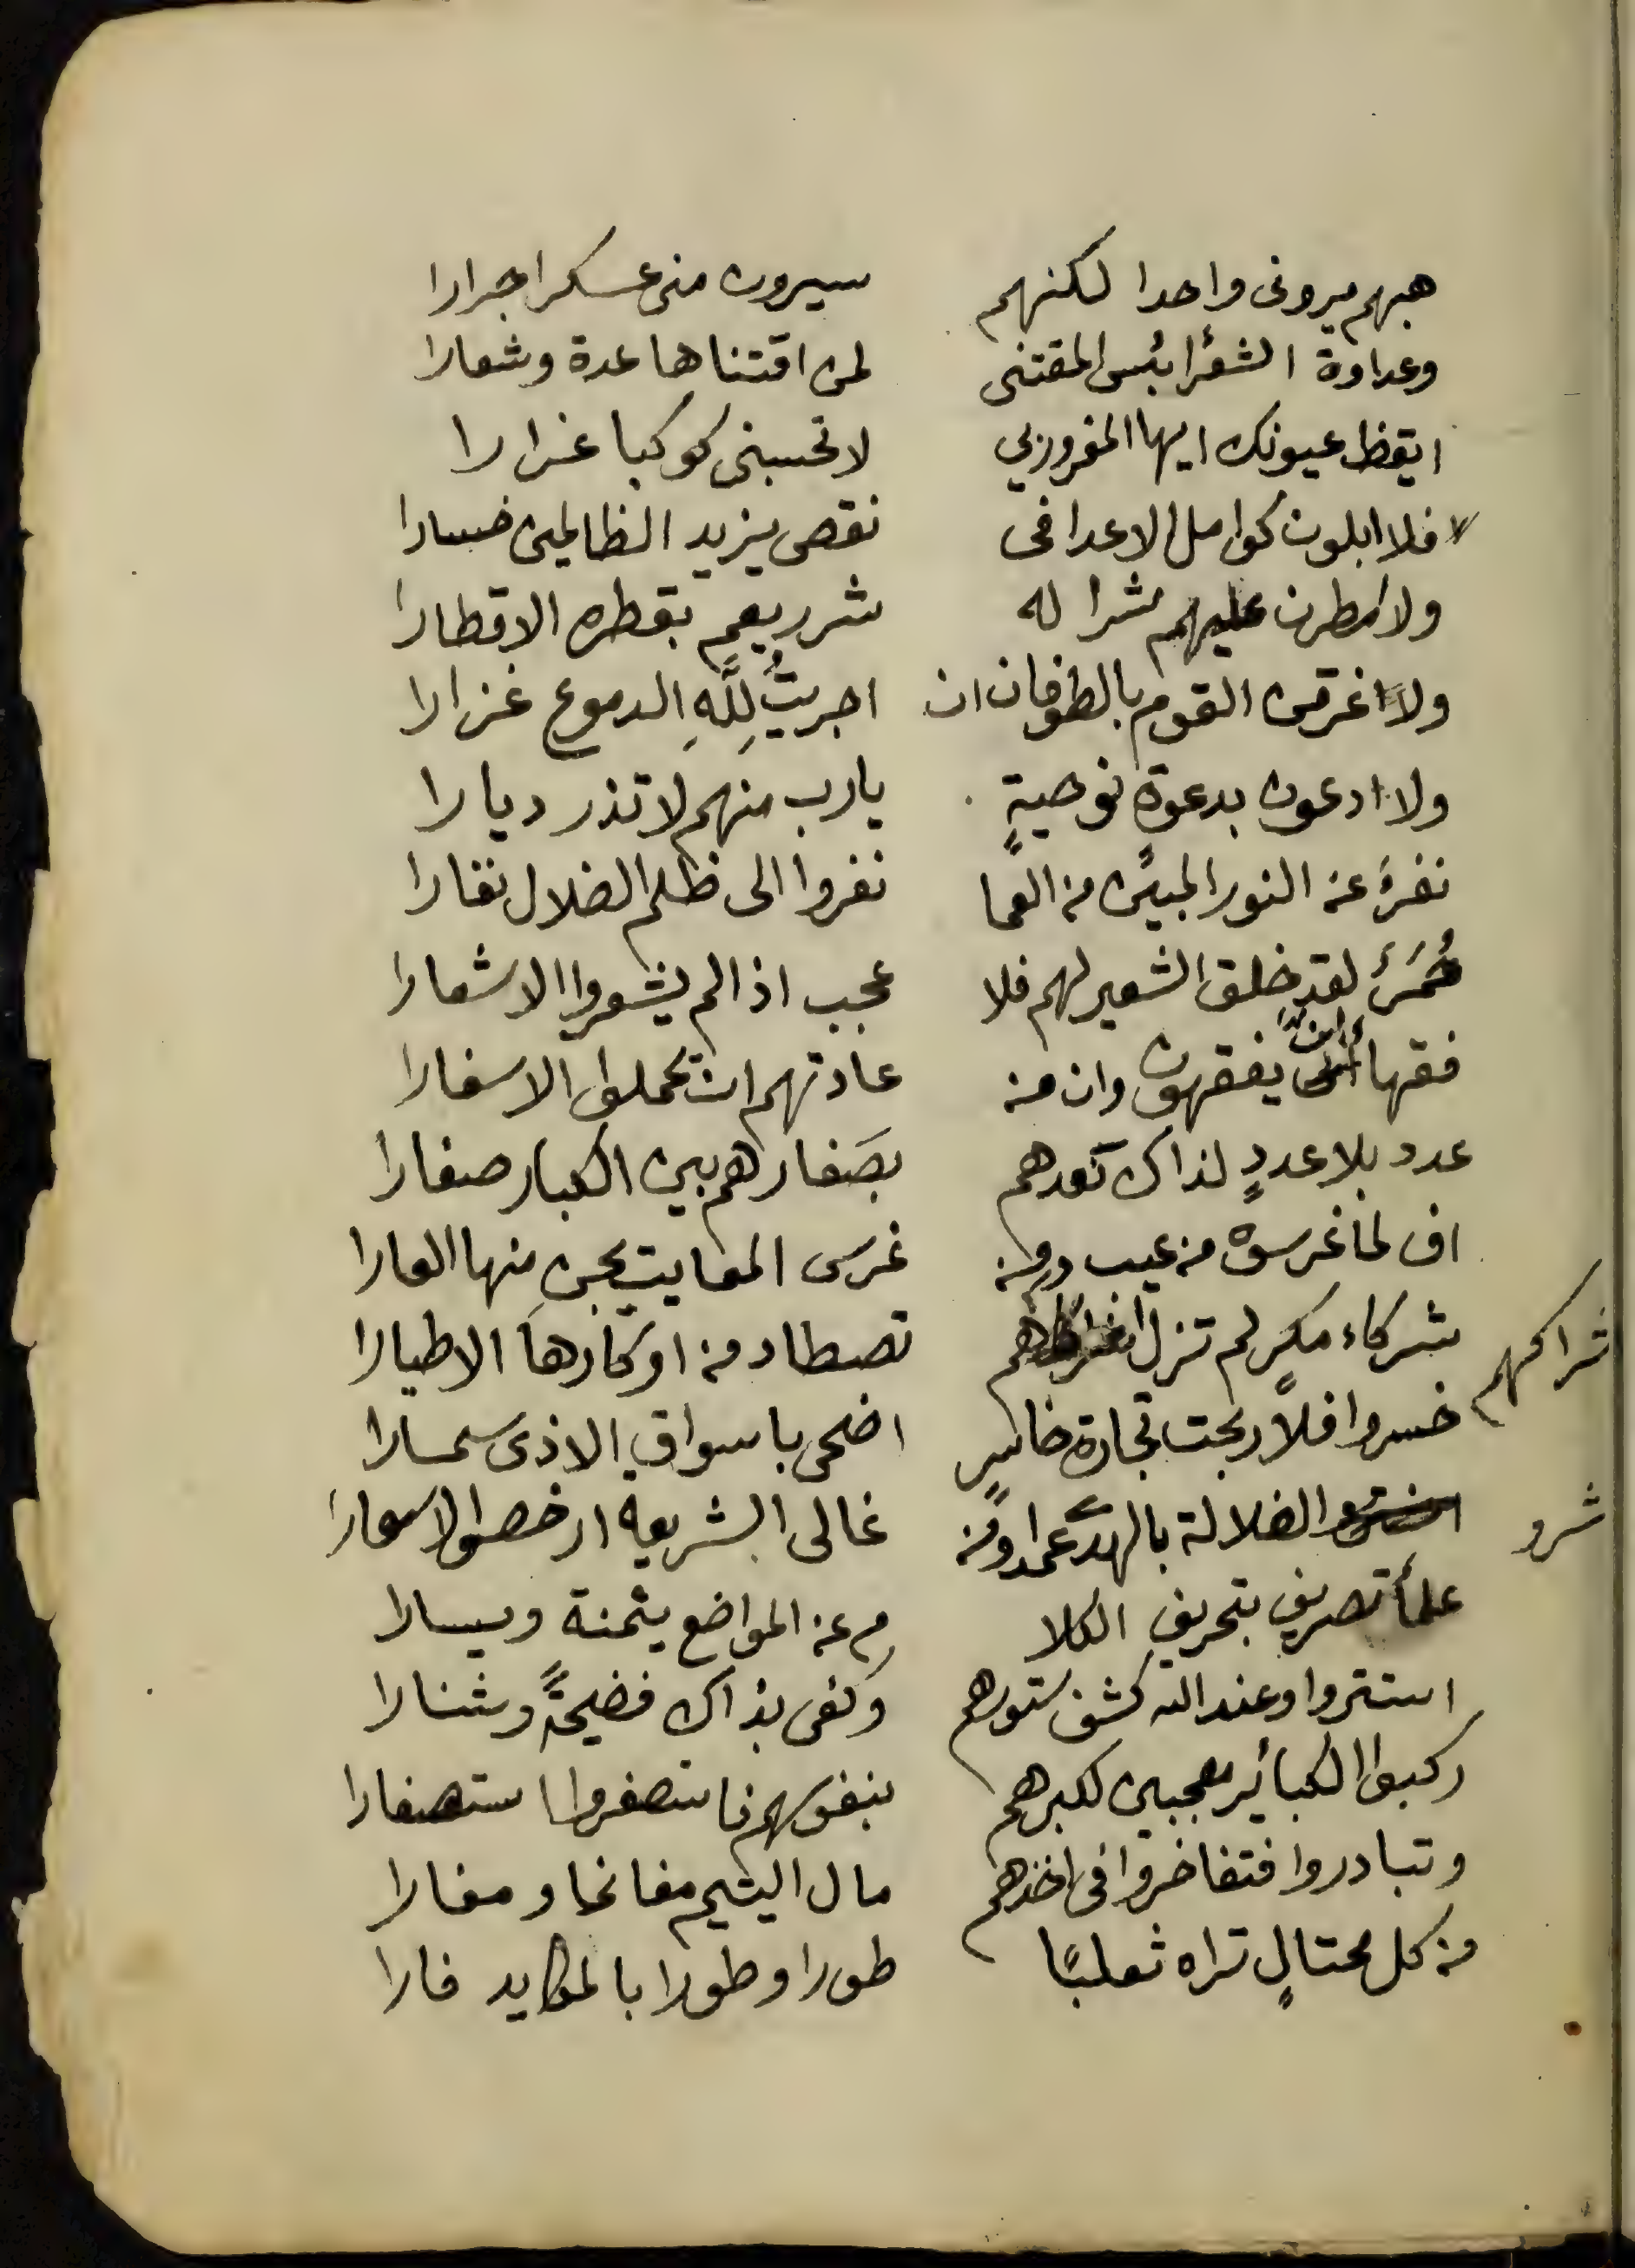 هبهم يرونى واحدا لكنهم سيرون منى عسكرا جرارا
وعداوة الشعرا بئس المقتنى لمن اقتناها عدة وشعارا
ايقظ عيونك ايها المغرور بي لا تحسبنى كوكبا غرارا
فلا ابلون كوامل الاعدا فى نقص يزيد الظالمين خسارا
ولا مطرن عليهم شرا له شرر يعم بقطره الاقطارا
ولا اغرقن القوم بالطوفان ان اجريتُ لِلَّهِ الدموع غزارا
ولا ادعون بدعوةٍ نوحيةٍ يارب منهم لا تذر ديارا
نفرٌ عن النور المبين من العما نفروا الى ظلم الضلال نفارا
حُمُرٌ لقد خلق الشعير لهم فلا عجب اذا لم يشعروا الاشعارا
فقها أنى يفقهون وان من عادتهم ان تحملوا الاسفارا
عدد بلا عددٍ لذاك تعدهم بصَغارهم بين الكبار صغارا
اف لما غرسوه من عيب ومن غرس المعايب يجن منها العارا
شركاء مكرٍ لم تزل تصطاد من اوكارها الاطيارا
شراكهم
خسروا فلا ربحت تجارة خاسرٍ اضحى باسواق الاذى سمسارا
الضلالة بالهدى عمدا ومن غالى الشريعه ارخصوا الاسعارا
شرو
علما تصريف بتحريف الكلا م عن المواضع يمنة ويسارا
استتروا وعند الله كشف ستورهم وكفى بذاك فضيحةً وشنارا
ركبوا الكبائر معجبين لكبرهم بنفوسهم فاستصغروا استصغارا
وتبادروا فتفاخروا فى اخذهم مال اليتيم مغانما ومغارا
من كل محتالٍ تراه ثعلبًا طورا وطورا بالمكايد فارا